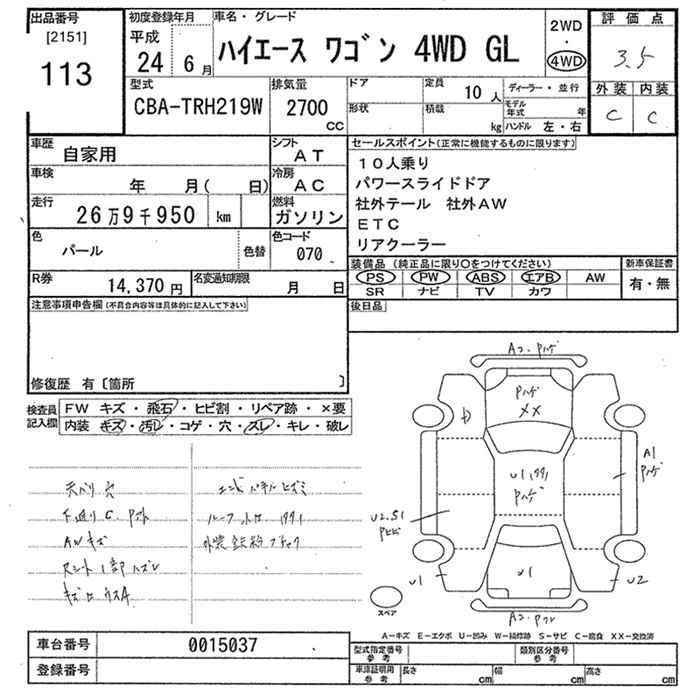 出品番号 [2151] 113
初度登録年月 平成 24 6月
車名・グレード ハイエース ワゴン 4WD GL
2WD ・ 4WD
評価点 3.5
外装 内装
C C
型式 CBA-TRH219W
排気量 2700 cc
ドア 形状
定員 10 人
積載 kg
ディーラー・並行
モデル年式 年
ハンドル 左・右
車歴 自家用
シフト AT
車検 年 月( 日)
冷房 AC
走行 26万9千950 km
燃料 ガソリン
色 パール 色替
色コード 070
R券 14,370円
名変通知期限 月 日
セールスポイント(正常に機能するものに限ります)
10人乗り
パワースライドドア
社外テール 社外AW
ETC
リアクーラー
装備品(純正品に限り○をつけてください)
PS PW ABS エアB AW
SR ナビ TV カワ
新車保証書
有・無
後日品
注意事項申告欄(不具合内容等は具体的に記入して下さい)
修復歴 有〔箇所 〕
検査員記入欄
FW キズ・飛石・ヒビ割・リペア跡・×要
内装 キズ・汚レ・コゲ・穴・スレ・キレ・破レ
天ベリ穴
AWキズ
A1
U1
XX
U2.S1
U1
U1
U2
スペア
A-キズ E-エクボ U-凹み W-補修跡 S-サビ C-腐食 XX-交換済
車台番号 0015037
登録番号
型式指定番号 参考
類別区分番号 参考
車庫証明用 参考 長さ cm 幅 cm 高さ cm